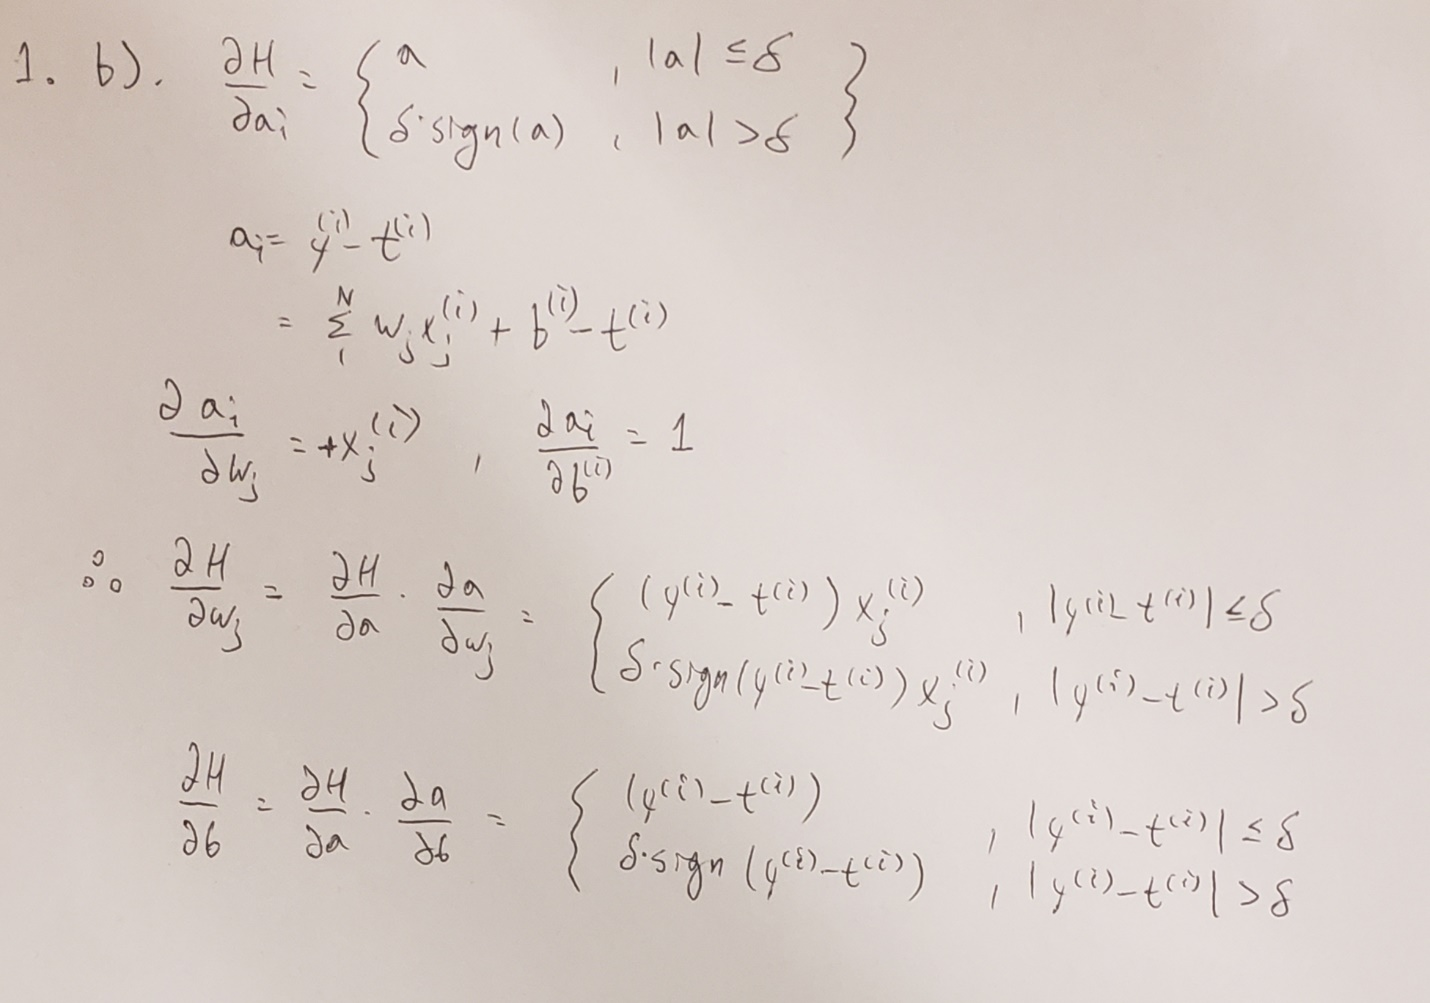 1. b). ∂H/∂a_i = { a , |a| ≤ δ }
{ δ·sign(a) , |a| > δ }
a_i = y^(i) - t^(i)
= Σ_1^N w_j x_j^(i) + b^(i) - t^(i)
∂a_i/∂w_j = +x_j^(i) , ∂a_i/∂b^(i) = 1
∴ ∂H/∂w_j = ∂H/∂a · ∂a/∂w_j = { (y^(i) - t^(i)) x_j^(i) , |y^(i) - t^(i)| ≤ δ
{ δ·sign(y^(i) - t^(i)) x_j^(i) , |y^(i) - t^(i)| > δ
∂H/∂b = ∂H/∂a · ∂a/∂b = { (y^(i) - t^(i)) , |y^(i) - t^(i)| ≤ δ
{ δ·sign(y^(i) - t^(i)) , |y^(i) - t^(i)| > δ